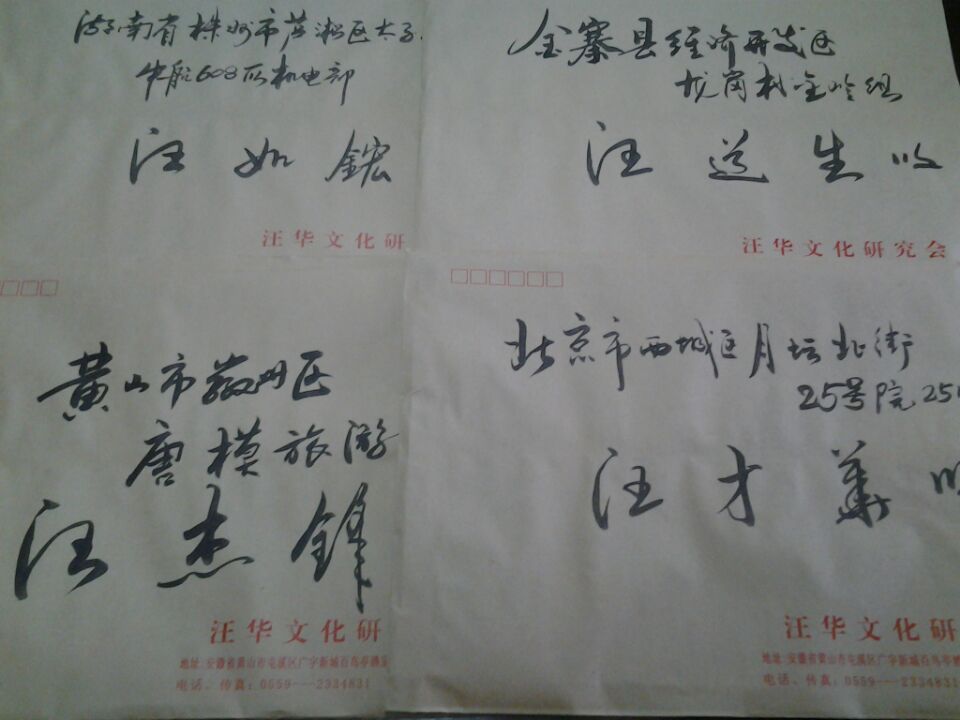 湖南省株洲市芦淞区大子
中航608所机电部
汪如鋐
汪华文化研
金寨县经济开发区
龙岗村金岭组
汪送生收
汪华文化研究会
黄山市徽州区
唐模旅游
汪杰锋
汪华文化研
地址:安徽省黄山市屯溪区广宇新城百鸟亭
电话、传真:0559---2334831
北京市西城区月坛北街
25号院25
汪才华收
汪华文化研
地址:安徽省黄山市屯溪区广宇新城百鸟亭
电话、传真:0559---2334831